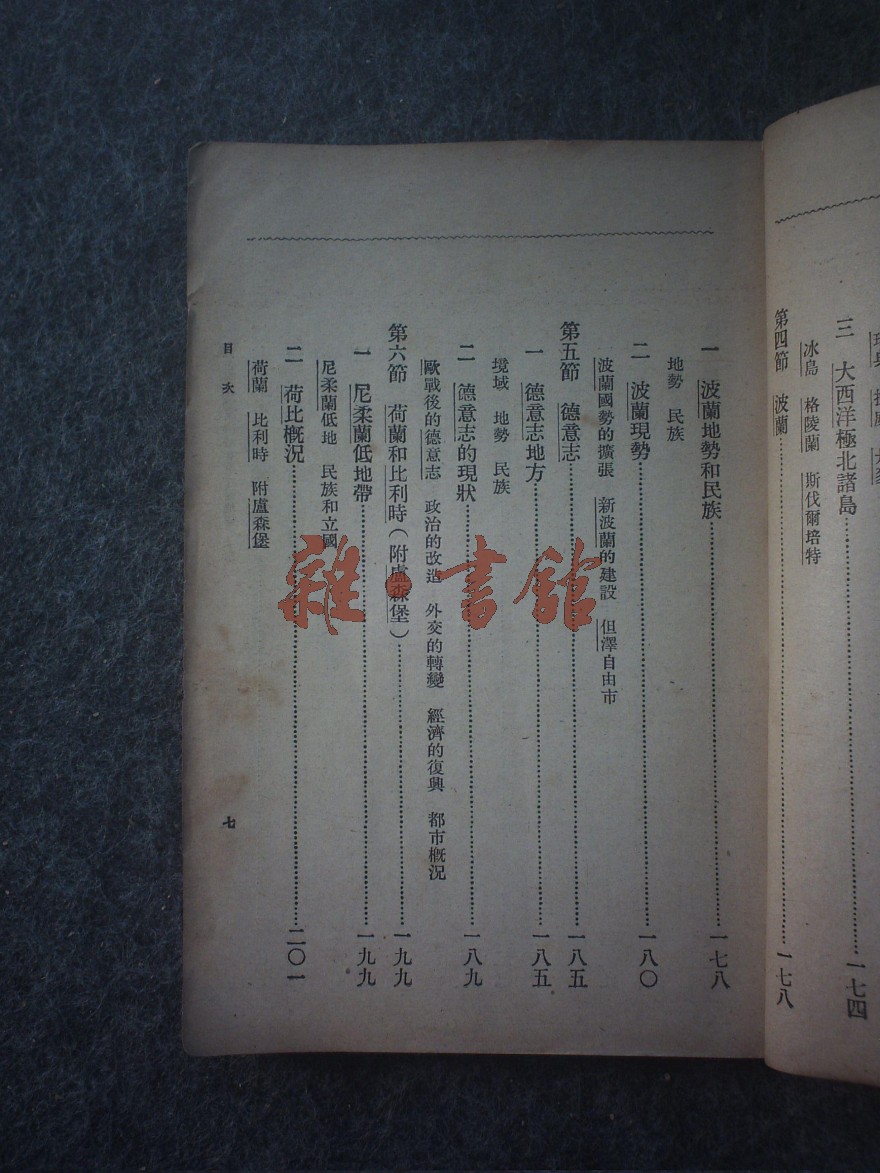 三　大西洋極北諸島……一七四
冰島　格陵蘭　斯伐爾培特
第四節　波蘭……一七八
一　波蘭地勢和民族……一七八
地勢　民族
二　波蘭現勢……一八〇
波蘭國勢的擴張　新波蘭的建設　但澤自由市
第五節　德意志……一八五
一　德意志地方……一八五
境域　地勢　民族
二　德意志的現狀……一八九
歐戰後的德意志　政治的改造　外交的轉變　經濟的復興　都市概況
第六節　荷蘭和比利時（附盧森堡）……一九九
一　尼柔蘭低地帶……一九九
尼柔蘭低地　民族和立國
二　荷比概況……二〇一
荷蘭　比利時　附盧森堡
目次
七
雜·書館